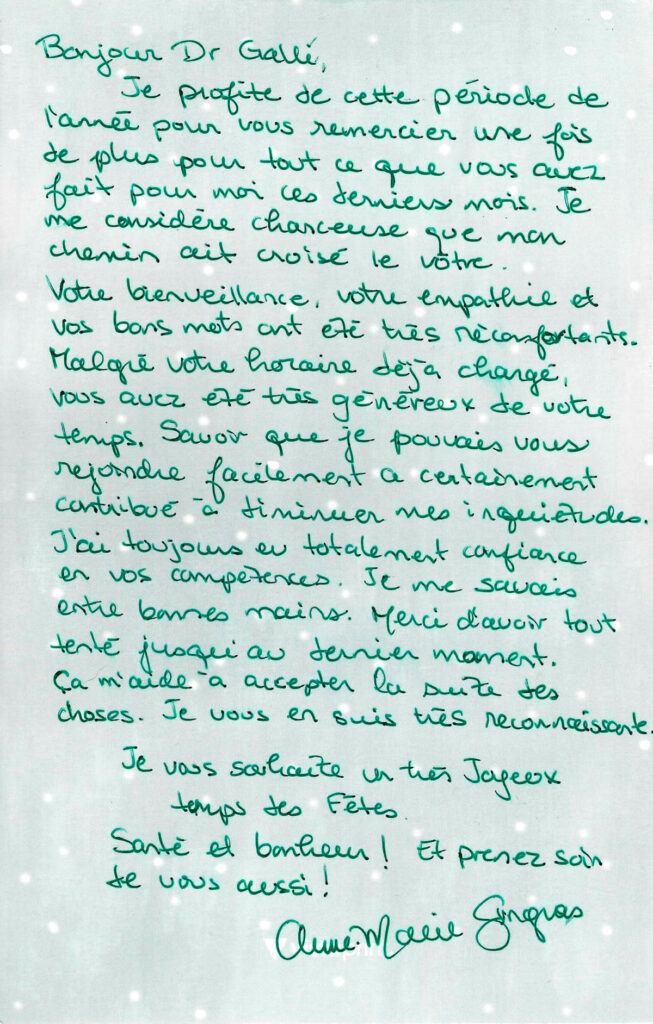 Bonjour Dr Galli,
Je profite de cette période de
l'année pour vous remercier une fois
de plus pour tout ce que vous avez
fait pour moi ces derniers mois. Je
me considère chanceuse que mon
chemin ait croisé le vôtre.
Votre bienveillance, votre empathie et
vos bons mots ont été très réconfortants.
Malgré votre horaire déjà chargé,
vous avez été très généreux de votre
temps. Savoir que je pouvais vous
rejoindre facilement a certainement
contribué à diminuer mes inquiétudes.
J'ai toujours eu totalement confiance
en vos compétences. Je me savais
entre bonnes mains. Merci d'avoir tout
tenté jusqu'au dernier moment.
Ça m'aide à accepter la suite des
choses. Je vous en suis très reconnaissante.
Je vous souhaite un très Joyeux
temps des Fêtes.
Santé et bonheur! Et prenez soin
de vous aussi!
Anne-Marie Gingras